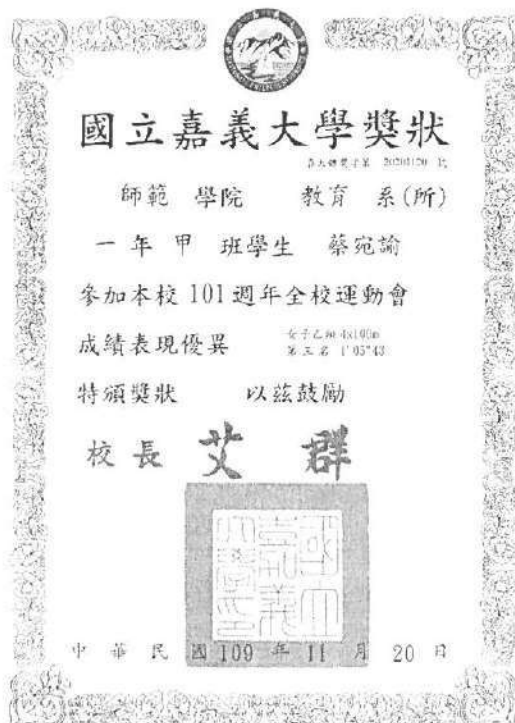 國立嘉義大學獎狀
嘉大體獎字第 20201120 號
師範 學院 教育 系(所)
一 年 甲 班學生 蔡宛諭
參加本校 101 週年全校運動會
成績表現優異 女子乙組 4x100m
第三名 1'05"43
特頒獎狀 以茲鼓勵
校長 艾 群
國立嘉義大學印
中 華 民 國 109 年 11 月 20 日